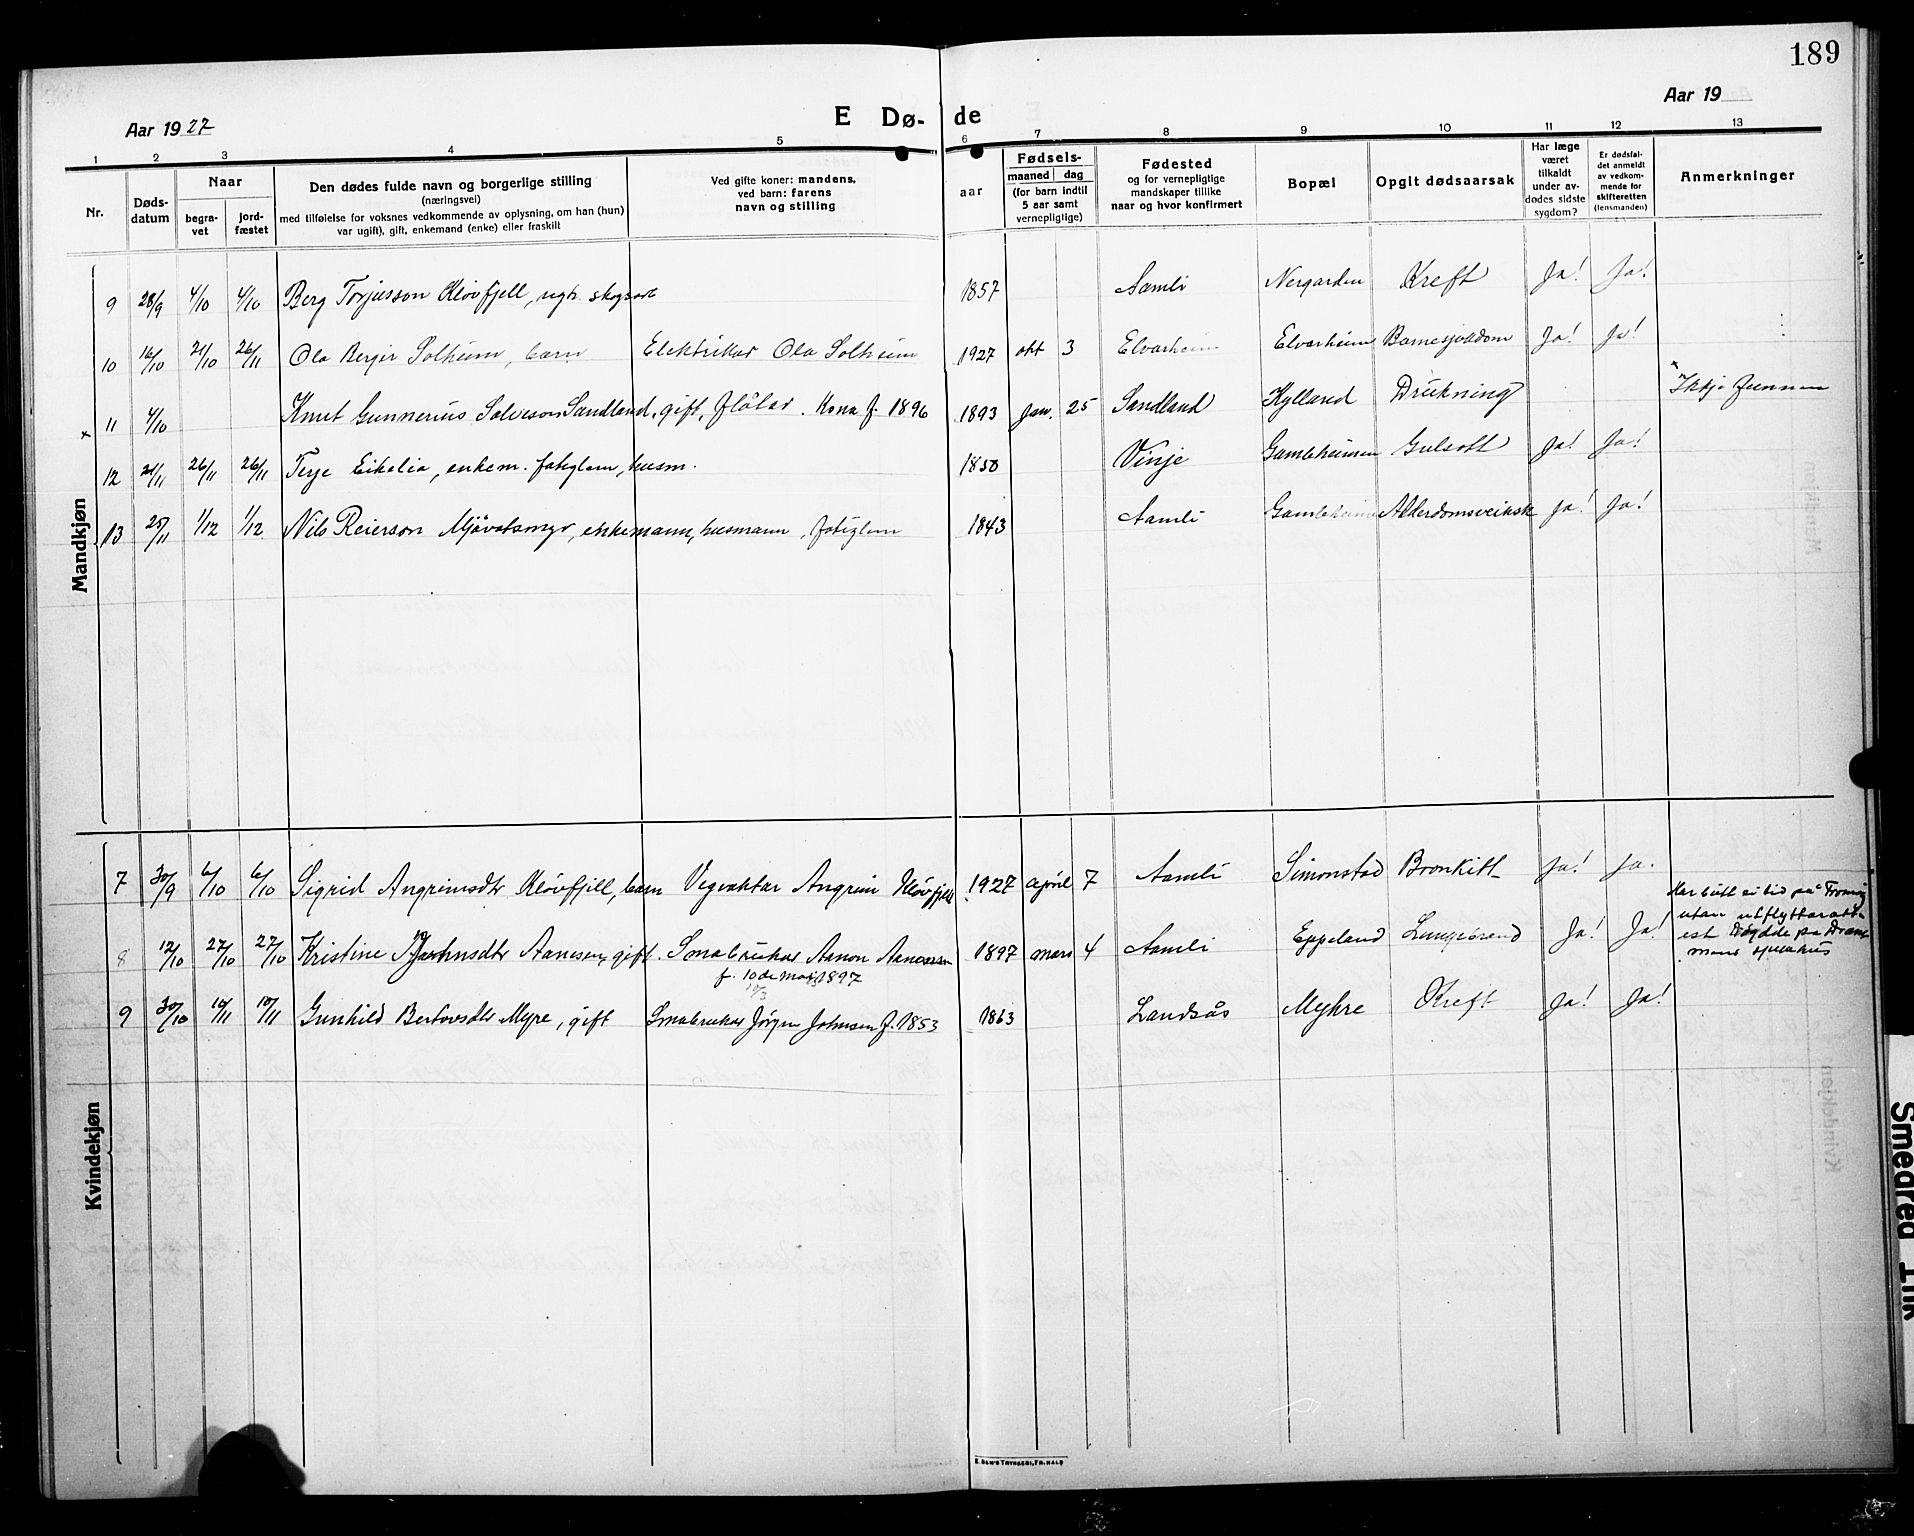 189
Aar 1927
E Dø-
de
Aar 19
1 2 3 4 5 6 7 8 9 10 11 12 13
Nr.
Døds-
datum
Naar
begra-
vet
jord-
fæstet
Den dødes fulde navn og borgerlige stilling
(næringsvei)
med tilføielse for voksnes vedkommende av oplysning, om han (hun)
var ugift), gift, enkemand (enke) eller fraskilt
Ved gifte koner: mandens,
ved barn: farens
navn og stilling
aar
Fødsels-
maaned dag
(for barn indtil
5 aar samt
vernepligtige)
Fødested
og for vernepligtige
mandskaper tillike
naar og hvor konfirmert
Bopæl
Opgit dødsaarsak
Har læge
været
tilkaldt
under av-
dødes sidste
sygdom?
Er dødsfal-
det anmeldt
av vedkom-
mende for
skifteretten
(lensmanden)
Anmerkninger
Mandkjøn
9 28/9 4/10 4/10 Berg Torjusson Kløvfjell, ugh. skogsarb 1857 Aamli Nergarden Kreft Ja! Ja!
10 16/10 21/10 26/11 Ola Berger Solheim, barn Elektrikar Ola Solheim 1927 okt 3 Elvarheim Elvarheim Barnesjukdom Ja! Ja!
x 11 4/10 Knut Gunnerius Salveson Sandland, gift, fløtar. Kona f. 1896 1893 Jan. 25 Sandland Hylland Drukning x Ikkje funnen
12 21/11 26/11 26/11 Terje Eikelia, enkem. fatiglem, husm. 1850 Vinje Gamleheimen Gulsott Ja! Ja!
13 25/11 1/12 1/12 Nils Reierson Mjåvatsmyr, enkemann, husmann, fatiglem 1843 Aamli Gamleheimen Alderdomsveiksk Ja! Ja!
Kvindekjøn
7 30/9 6/10 6/10 Sigrid Angrimsdtr Kløvfjell, barn Vegvaktar Angrim Kløvfjell 1927 april 7 Aamli Simonstad Bronkitt Ja! Ja.
8 12/10 27/10 27/10 Kristine Aanesen, gift. Småbrukar Aanon Aanesen 1897 mars 4 Aamli Eppeland Lungebrand Ja! Ja!
f. 10de mai 1897
10/3
Har butt ei tid på Tromøy
utan utflyttaratt-
est Døydde på
sjukehus
9 30/10 10/11 10/11 Gunhild Bertovsdtr Myre, gift Småbrukar Jørgen Johnsen f. 1853 1863 Landsås Myhre Kreft Ja! Ja!
Smeared Ink